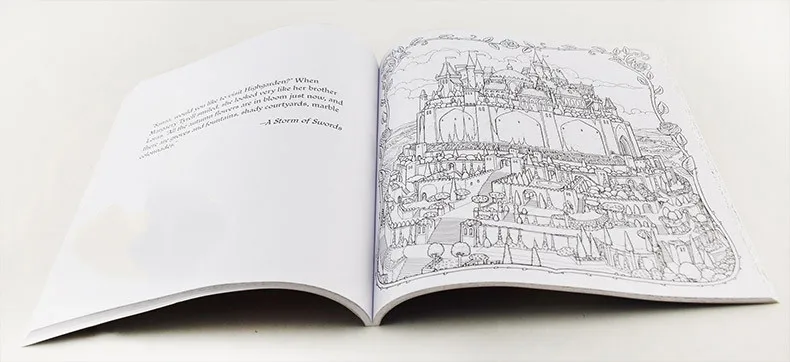 "Sansa, would you like to visit Highgarden?" When
Margaery Tyrell smiled, she looked very like her brother
Loras. "All the autumn flowers are in bloom just now, and
there are groves and fountains, shady courtyards, marble
colonnades."
–A Storm of Swords